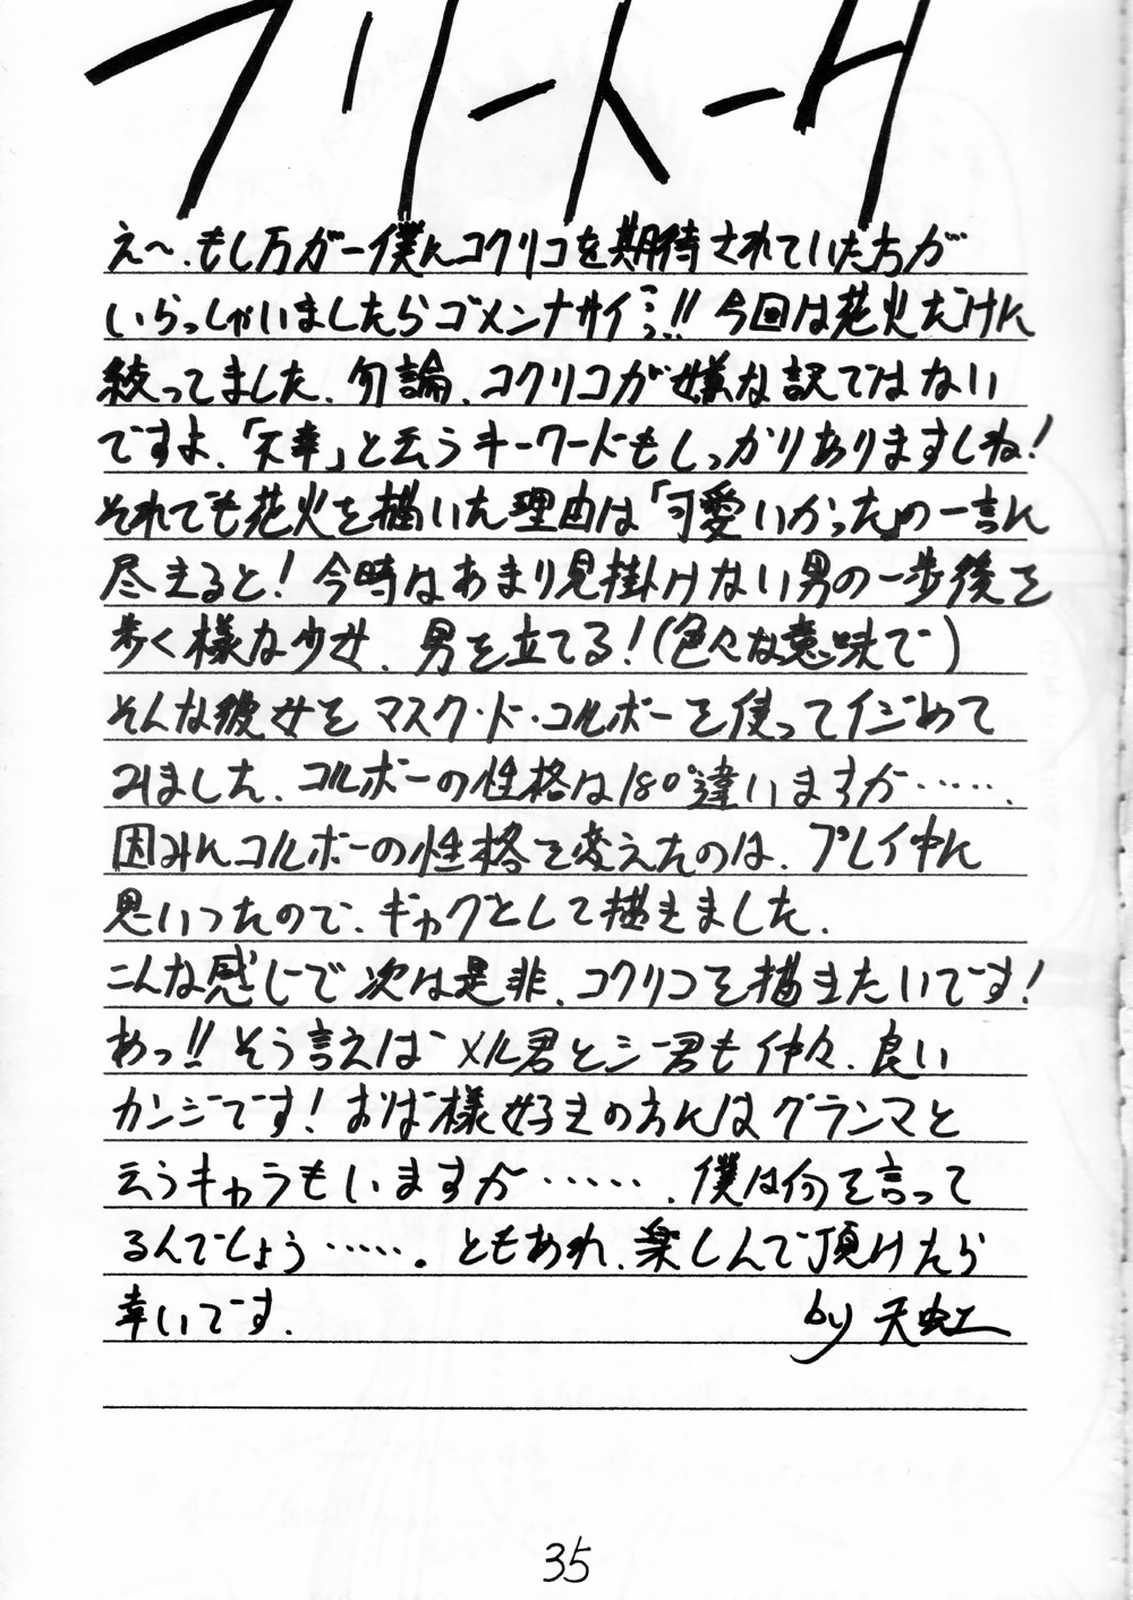 フリートーク
え〜、もし万が一僕にコクリコを期待されていた方が
いらっしゃいましたらゴメンナサイ…っ!! 今回は花火だけに
絞ってました、勿論、コクリコが嫌な訳ではない
ですよ、「不幸」と云うキーワードもしっかりありますしね!
それでも花火を描いた理由は「可愛いかった」の一言に
尽きると! 今時はあまり見掛けない男の一歩後を
歩く様な少女、男を立てる!(色々な意味で)
そんな彼女をマスク・ド・コルボーを使ってイジめて
みました、コルボーの性格は180°違いますが……、
因みにコルボーの性格を変えたのは、プレイ中に
思いつったので、ギャグとして描きました、
こんな感じで次は是非、コクリコを描きたいです!
あっ!! そう言えばメル君とシー君も仲々、良い
カンジです! おば様好きの方にはグランマと
云うキャラもいますが……、僕は何を言って
るんでしょう……。ともあれ、楽しんで頂けたら
幸いです、 by 天虹
35